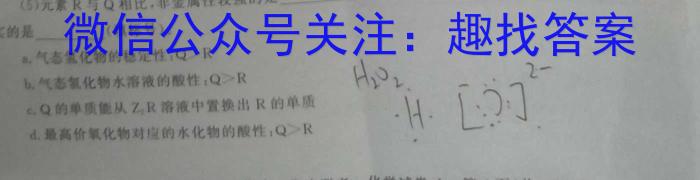 (5)元素R与Q相比,非金属性较强的是
微信公众号关注：趣找答案
a.气态氢化物的稳定性:Q>R
b.气态氢化物水溶液的酸性:Q>R
H₂O₂
c.Q的单质能从Z₂R溶液中置换出R的单质
·H· [:O:]²⁻
d.最高价氧化物对应的水化物的酸性:Q>R